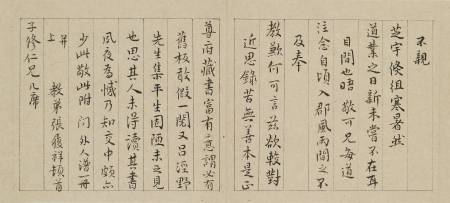 不親
芝宇倏徂寒暑然
道業之日新未嘗不在耳
目間也晤 敬可兄每道
注念自頃入郡風雨間之不
及奉
教歉何可言茲欲較對
近思錄苦無善本是正
尊府藏書富有意謂必有
舊板敢假一閱又呂涇野
先生集平生固陋未之見
也思其人未得讀其書
夙夜為憾乃知交中頗亦
少此敬此附 聞外人譜一冊
并
上 教弟張履祥頓首
子修仁兄几席